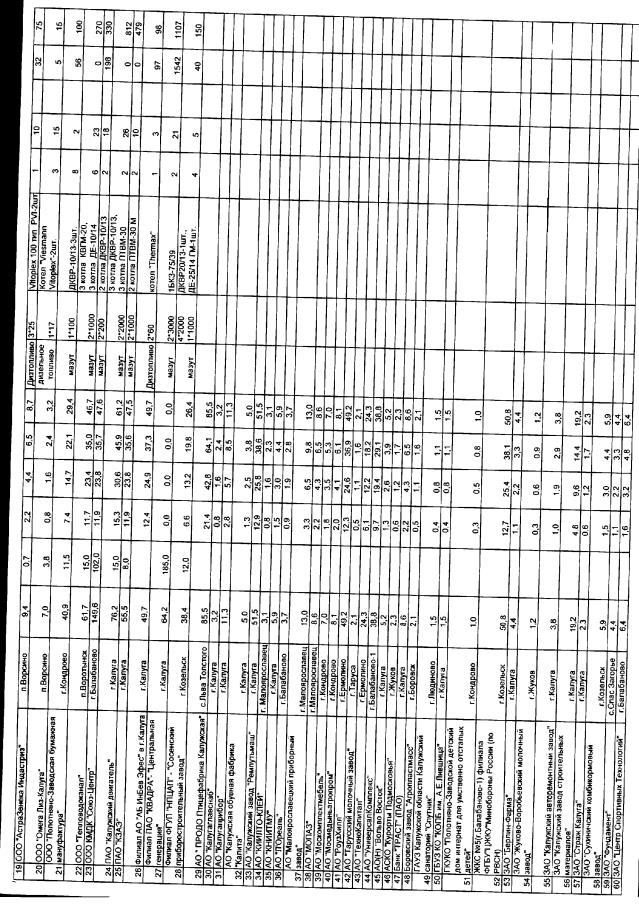 19 ООО "АстраЗенека Индастриз" п.Ворсино 9,4 0,7 2,2 4,4 6,5 8,7 Дизтопливо 3*25 Vitoplex 100 тип PVI-2шт 1 10 32 75
20 ООО "Омега Лиз-Калуга" п.Ворсино 7,0 3,8 0,8 1,6 2,4 3,2 дизельное топливо 1*17 Котел "Viesmann Vitoplex"-2шт. 3 15 5 15
21 ООО "Полотняно-Заводская бумажная мануфактура"
22 ООО "Тепловодоканал" г.Кондрово 40,9 11,5 7,4 14,7 22,1 29,4 мазут 1*100 ДКВР-10/13-3шт. 8 2 56 100
23 ООО КМДК "Союз-Центр" п.Водолынск 61,7 15,0 11,7 23,4 35,0 46,7 мазут 2*1000 3 котла КВГМ-20, 3 котла ДЕ-10/14 6 23 0 270
г.Балабаново 149,6 102,0 11,9 23,8 35,7 47,6 мазут 2*200 2 котла ДКВР-10/13 2 18 198 330
24 ПАО "Калужский двигатель" г.Калуга 76,2 15,0 15,3 30,6 45,9 61,2 мазут 2*2000 3 котла ДКВР-10/13, 3 котла ПТВМ-30 2 26 0 812
25 ПАО "КЗАЭ" г.Калуга 55,5 8,0 11,9 23,8 35,6 47,5 мазут 2*1000 2 котла ПТВМ-30 М 2 10 0 479
26 Филиал АО "АБ ИнБев Эфес" в г.Калуга г.Калуга 49,7 12,4 24,9 37,3 49,7 Дизтопливо 2*60 котел "Thermax" 1 3 97 98
27 Филиал ПАО "КВАДРА" - "Центральная генерация" г.Калуга 64,2 185,0 0,0 0,0 0,0 0,0 мазут 2*3000 1БКЗ-75/39 2 21 1542 1107
28 Филиал ФГУП "НПЦАП" - "Сосенский приборостроительный завод" г.Козельск 38,4 12,0 6,6 13,2 19,8 26,4 мазут 4*2000 1*1000 ДКВР20/13-1шт., ДЕ-25/14 ГМ-1шт. 4 5 40 150
29 АО "ПРОДО Птицефабрика Калужская" с.Льва Толстого 85,5 21,4 42,8 64,1 85,5
30 АО "Калугаглавснаб" г.Калуга 3,2 0,8 1,6 2,4 3,2
31 АО "Калугаприбор" г.Калуга 11,3 2,8 5,7 8,5 11,3
32 АО "Калужская обувная фабрика "Калита" г.Калуга 5,0 1,3 2,5 3,8 5,0
33 АО "Калужский завод "Ремпутьмаш" г.Калуга 51,5 12,9 25,8 38,6 51,5
34 АО "КИИПО-КЛЕИ" г. Малоярославец 3,1 0,8 1,6 2,3 3,1
35 АО "КНИИТМУ" г.Калуга 5,9 1,5 3,0 4,4 5,9
36 АО "Л'Ореаль" г.Балабаново 3,7 0,9 1,9 2,8 3,7
37 АО "Малоярославецкий приборный завод" г.Малоярославец 13,0 3,3 6,5 9,8 13,0
38 АО "МОПАЗ" г.Малоярославец 8,6 2,2 4,3 6,5 8,6
39 АО "Москомплектмебель" г.Кондрово 7,0 1,8 3,5 5,3 7,0
40 АО "Мосмедыньагропром" г.Кондрово 8,1 2,0 4,1 6,1 8,1
41 АО "РаухХеми" г.Ермолино 49,2 12,3 24,6 36,9 49,2
42 АО "Тарусский молочный завод" г.Таруса 2,1 0,5 1,1 1,6 2,1
43 АО "ТехноКапитан" г.Ермолино 24,3 6,1 12,2 18,2 24,3
44 АО "УниверсалКомплекс" г.Балабаново-1 38,8 9,7 19,4 29,1 38,8
45 АСОНН "Вольный Восток" г.Калуга 5,2 1,3 2,6 3,9 5,2
46 АСКО "Курорты Подмосковья" г.Жуков 2,3 0,6 1,2 1,7 2,3
47 Банк "ТРАСТ" (ПАО) г.Калуга 8,6 2,2 4,3 6,5 8,6
48 Боровский завод "Агропластмасс" г.Боровск 2,1 0,5 1,1 1,6 2,1
49 ГАУЗ Калужской области Калужский санаторий "Спутник" г.Людиново 1,5 0,4 0,8 1,1 1,5
50 ГБУЗ КО "КОПБ им. А.Е.Лифшица" г.Калуга 1,5 0,4 0,8 1,1 1,5
51 ГКУКО "Полотняно-Заводской детский дом интернат для умственно отсталых детей" г.Кондрово 1,0 0,3 0,5 0,8 1,0
52 ЖКС №(г.Балабаново-1) филиала ФГБУ "ЦЖКУ"Минобороны России (по РВСН)
53 ЗАО "Берлин-Фарма" г.Козельск 50,8 12,7 25,4 38,1 50,8
54 ЗАО "Жуково-Воробьевский молочный завод" г.Калуга 4,4 1,1 2,2 3,3 4,4
г.Жуков 1,2 0,3 0,6 0,9 1,2
55 ЗАО "Калужский авторемонтный завод"
56 ЗАО "Калужский завод строительных материалов" г.Калуга 3,8 1,0 1,9 2,9 3,8
57 ЗАО "Страж Калуга" г.Калуга 19,2 4,8 9,6 14,4 19,2
58 ЗАО "Сухиничский комбикормовый завод" г.Калуга 2,3 0,6 1,2 1,7 2,3
59 ЗАО "Фундамент" г.Козельск 5,9 1,5 3,0 4,4 5,9
с.Спас-Загорье 4,4 1,1 2,2 3,3 4,4
60 ЗАО "Центр Спортивных Технологий" г.Балабаново 6,4 1,6 3,2 4,8 6,4